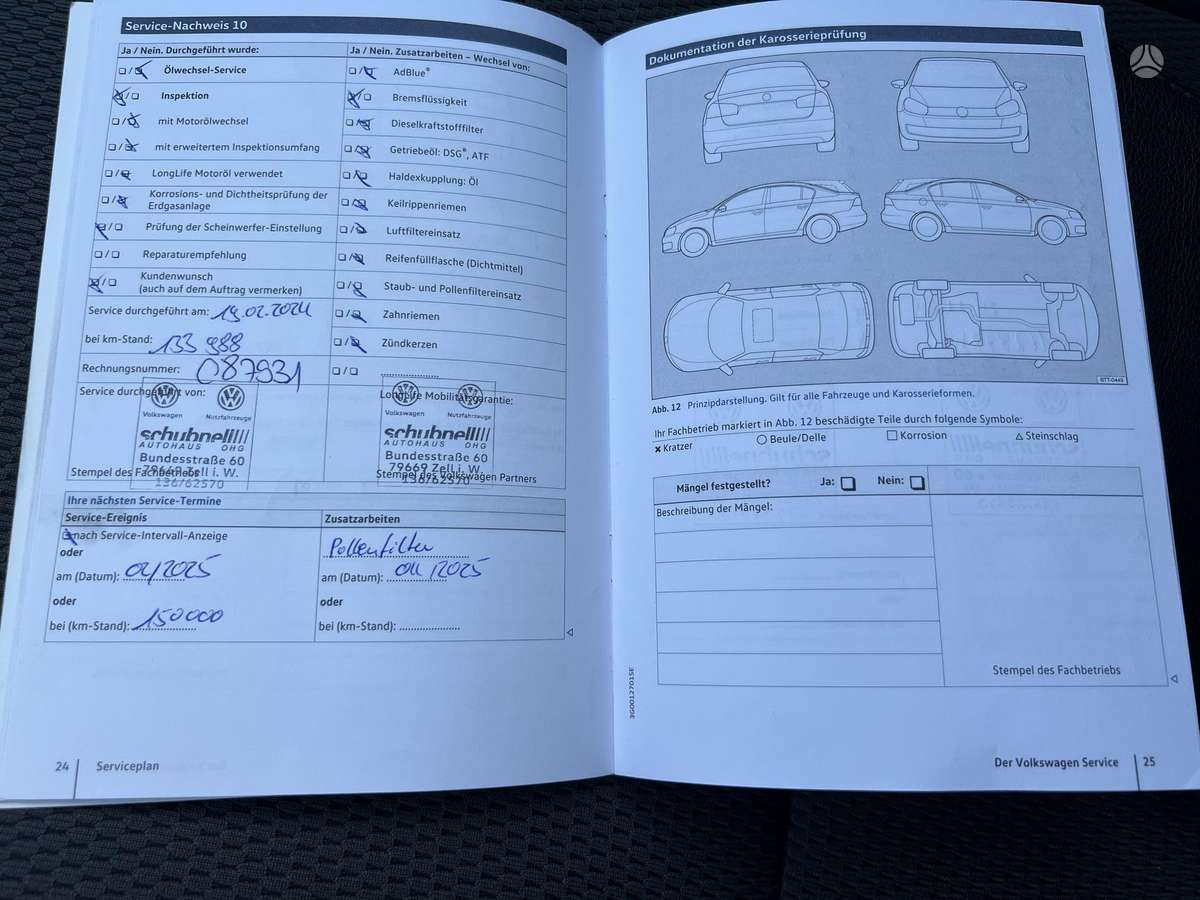 Service-Nachweis 10
Ja / Nein. Durchgeführt wurde:
Ölwechsel-Service
Inspektion
mit Motorölwechsel
mit erweitertem Inspektionsumfang
LongLife Motoröl verwendet
Korrosions- und Dichtheitsprüfung der
Erdgasanlage
Prüfung der Scheinwerfer-Einstellung
Reparaturempfehlung
Kundenwunsch
(auch auf dem Auftrag vermerken)
Service durchgeführt am: 19.02.2024
bei km-Stand: 133 988
Rechnungsnummer: 087931
Service durchgeführt von:
Volkswagen Nutzfahrzeuge
schubnell
AUTOHAUS OHG
Bundesstraße 60
79669 Zell i. W.
Stempel des Fachbetriebs
136/62570
Ja / Nein. Zusatzarbeiten – Wechsel von:
AdBlue®
Bremsflüssigkeit
Dieselkraftstofffilter
Getriebeöl: DSG®, ATF
Haldexkupplung: Öl
Keilrippenriemen
Luftfiltereinsatz
Reifenfüllflasche (Dichtmittel)
Staub- und Pollenfiltereinsatz
Zahnriemen
Zündkerzen
LongLife Mobilitätsgarantie:
Volkswagen Nutzfahrzeuge
schubnell
AUTOHAUS OHG
Bundesstraße 60
79669 Zell i. W.
Stempel des Volkswagen Partners
136/62570
Ihre nächsten Service-Termine
Service-Ereignis
nach Service-Intervall-Anzeige
oder
am (Datum): 04/2025
oder
bei (km-Stand): 150000
Zusatzarbeiten
Pollenfilter
am (Datum): 04/2025
oder
bei (km-Stand):
24 Serviceplan
Dokumentation der Karosserieprüfung
B7T-0449
Abb. 12 Prinzipdarstellung. Gilt für alle Fahrzeuge und Karosserieformen.
Ihr Fachbetrieb markiert in Abb. 12 beschädigte Teile durch folgende Symbole:
Kratzer Beule/Delle Korrosion Steinschlag
Mängel festgestellt? Ja: Nein:
Beschreibung der Mängel:
Stempel des Fachbetriebs
3G0012701SE
Der Volkswagen Service 25